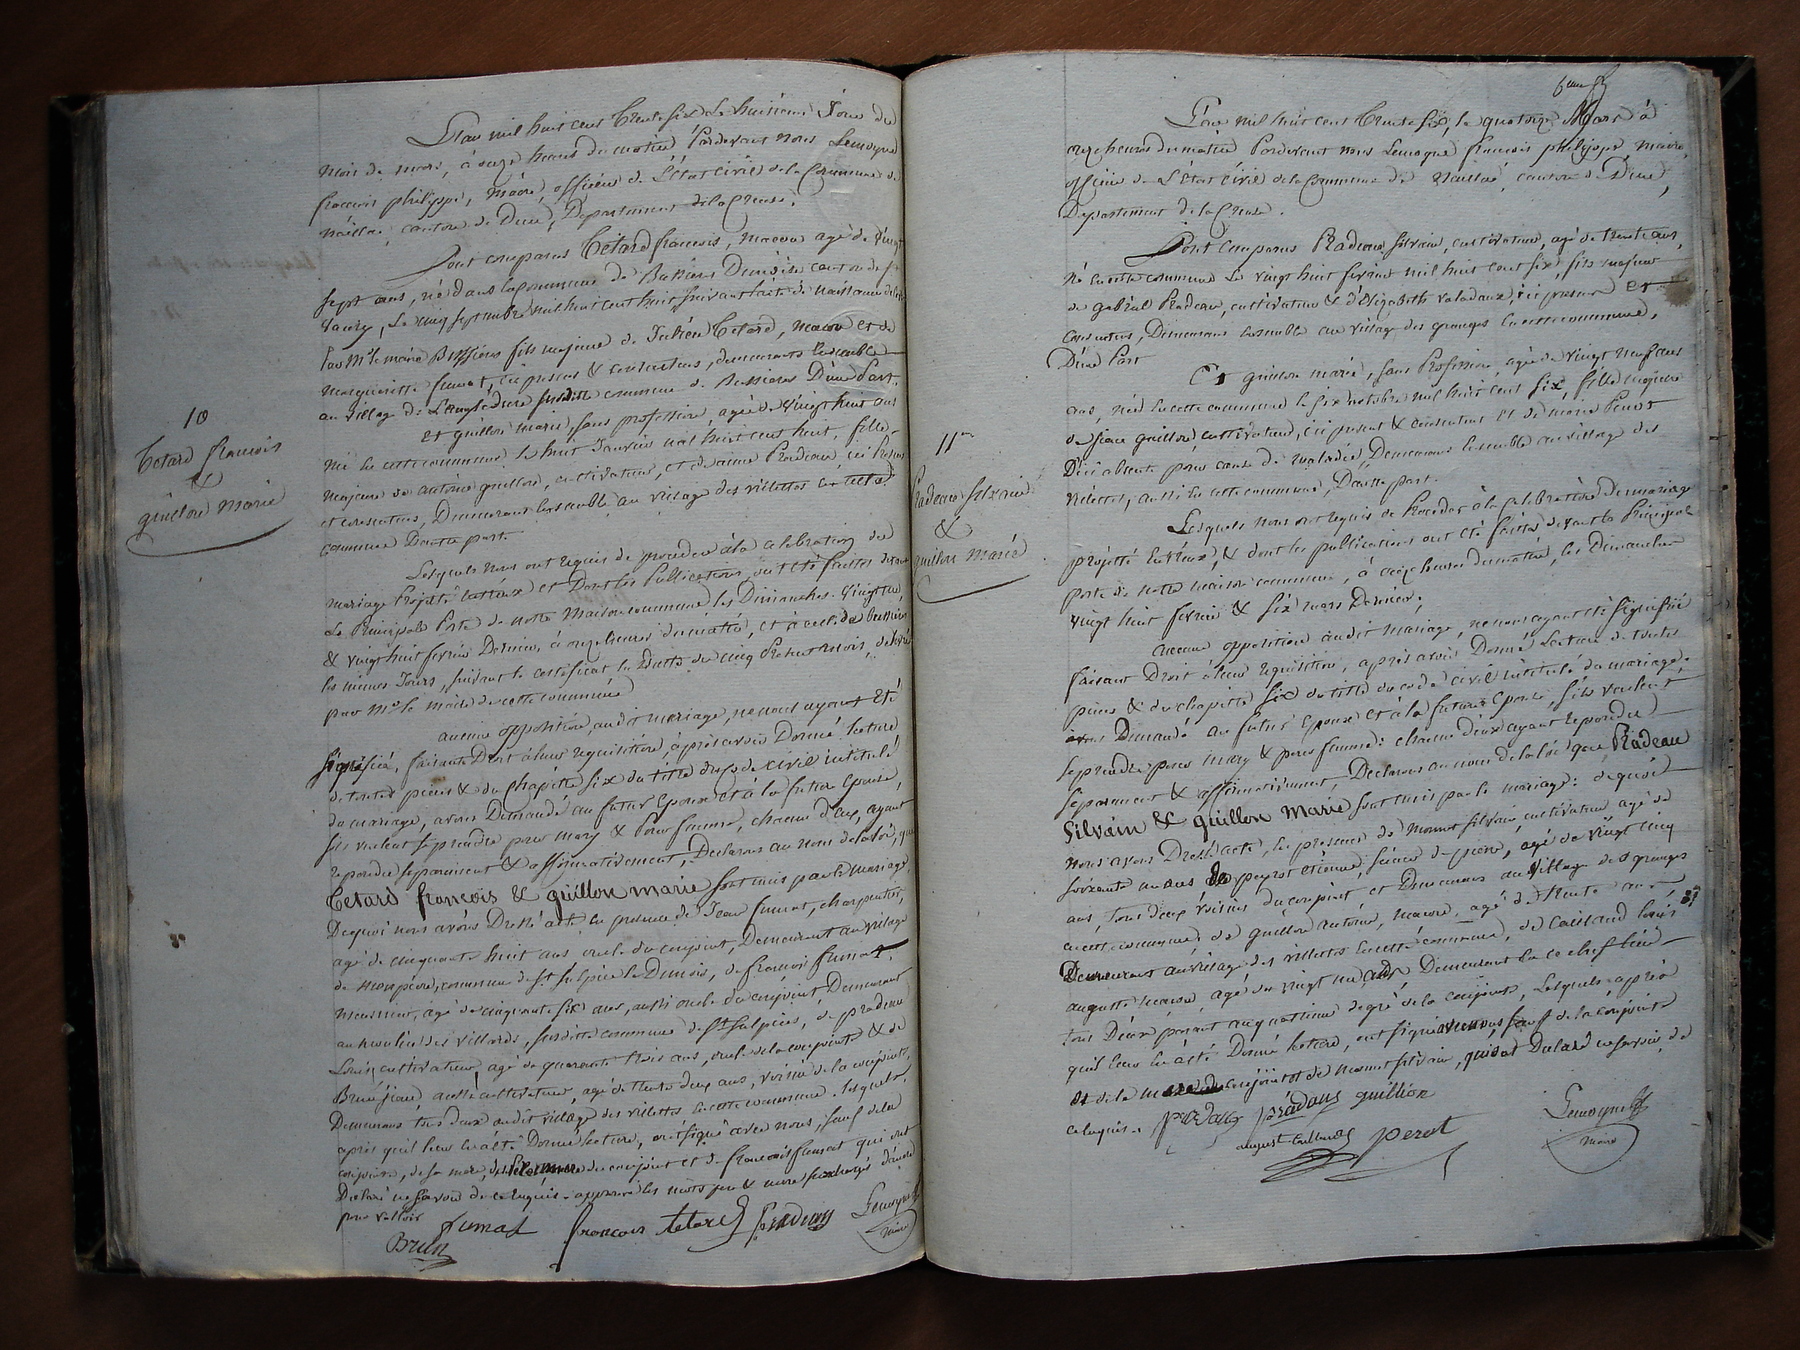 L'an mil huit cent trente six Le huitième Jour du
mois de mars, à onze heures du matin Pardevant nous Lemoyne
francois philippe, Maire, officier de L'état civil de la Commune de
naillac, canton de Dun, Département de la Creuse.
Sont comparus Tétard francois, macon agé de vingt
sept ans, né dans la commune de Bussiere Dunoise canton de St
Vaury, Le cinq septembre mil huit cent huit suivant l'acte de naissance délivré
Par Mr le maire Bussiere fils majeur de Julien Tétard, macon et de
margueritte fumat, ici présens & consentens, demeurants Ensemble
au village de susditte commune de Bussiere D'une Part.
et guillon marie, sans profession, agée de vingt huit ans
née en cette commune le huit Janvier mil huit cent huit, fille
majeure de antoine guillon, cultivateur, et de anne Pradeau, ici Présens
et consentens, Demeurant Ensemble au village des villettes En cette
commune D'autre part.
10
Tetard francois
&
guillon marie
Lesquels nous ont requis de proceder à la celebration du
mariage Projetté entreux et Dont les Publications ont été faittes devant
La Principale Porte de notre Maison commune les Dimanches vingt un,
& vingt huit fevrier Dernier, à onze heures du matin, et à celle de bussiere
les mêmes Jours, suivant le certificat en date du cinq Présent mois, delivré
par Mr le maire de cette commune
aucune opposition audit mariage, ne nous ayant été
signifiée, faisant Droit à leur requisition, après avoir Donné lecture
de toutes pieces & du chapitre six du titre du code civil intitulé
du mariage, avons Demandé au futur Epoux et à la future Epouse,
s'ils veulent se prendre pour mary & Pour femme, chacun d'eux, ayant
repondu separement & affirmativement, Declarons au nom de la loi, que
Tetard francois & guillon marie sont unis par le mariage
De quoi nous avons Dressé acte en presence de Jean fumat, charpentier,
agé de cinquante huit ans oncle du conjoint, Demeurant au village
de commune de St Sulpice le Dunois, de francois fumat,
meunier, agé de cinquante six ans, aussi oncle du conjoint Demeurant
au moulin des villards, susditte commune de St Sulpice, de pradeau
Louis cultivateur agé de quarante trois ans, oncle de la conjointe & de
Brun Jean, aussi cultivateur, agé de trente deux ans, voisin de la conjointe,
Demeurans tous deux audit village des villettes En cette commune. lesquels
après qu'il leur En a été Donné lecture, ont signé avec nous, sauf de la
conjointe, de sa mère, du conjoint et de francois fumat qui ont
Declaré ne savoir de ce enquis. approuvé les mots
pour valloir
fumat francois tetard Pradeau Lemoyne
maire
Brun
L'an mil huit cent Trente Six, le quatorze Mars à
onze heures du matin Pardevant nous Lemoyne francois philippe maire,
officier de L'état civil de la Commune de Naillac, canton de Dun,
Departement de la Creuse.
Sont comparus Pradeau Silvain, cultivateur, agé de trente ans,
né en cette commune Le vingt huit fevrier mil huit cent six, fils majeur
de gabriel Pradeau, cultivateur & d'Elizabeth valadaux, ici présens et
consentens, Demeurans Ensemble au village des granges En cette commune,
D'une Part
Et guillon marie, sans Profession, agée de vingt neuf ans
ans, née En cette commune le six octobre mil huit cent six, fille majeure
de Jean guillon cultivateur, ici present & consentent et de marie Penot
absente pour cause de maladie, Demeurans Ensemble au village des
Vilettes, aussi En cette commune, D'autre part.
11me
Pradeau silvain
&
guilon Marie
Lesquels nous ont requis de Proceder à la celebration Du mariage
projetté Entreux, & dont les publications ont été faittes devant la Principal
porte de notre maison commune, à onze heures du matin, les Dimanches
vingt huit fevrier & six mars Dernier.
aucune opposition audit mariage, ne nous ayant été signifiée
faisant Droit à leur requisition, après avoir Donné Lecture de toutes
pieces & du chapitre six du titre du code civil intitulé du mariage.
avons Demandé au futur Epoux et à la future Epouse, s'ils veulent
se prendre pour mary & pour femme: chacun d'eux ayant repondu
separement & affirmativement, Declarons au nom de la loi que Pradeau
Silvain & guillon Marie sont unis par le mariage: de quoi
nous avons Dressé acte, En presence de Momot silvain, cultivateur agé de
soixante un ans de peyrot etienne, de pierre, agé de vingt cinq
ans, tous deux voisins du conjoint et Demeurans au village des granges
en cette commune, de guillon antoine, macon, agé de Trente ans
Demeurant au village des villettes en cette commune, de caillaud louis
auguste macon, agé de vingt un ans, Demeurant En ce chef lieu
tous Deux parant au quatrieme degré de la conjointe, Lesquels après
qu'il leur En a été Donné lecture, ont signé avec nous sauf de la conjointe
et de la conjoint et de momot silvain, qui ont Declaré ne savoir, de
ce enquis. pradaux pradaus guillion
Lemoyne
maire
august caillaud perot